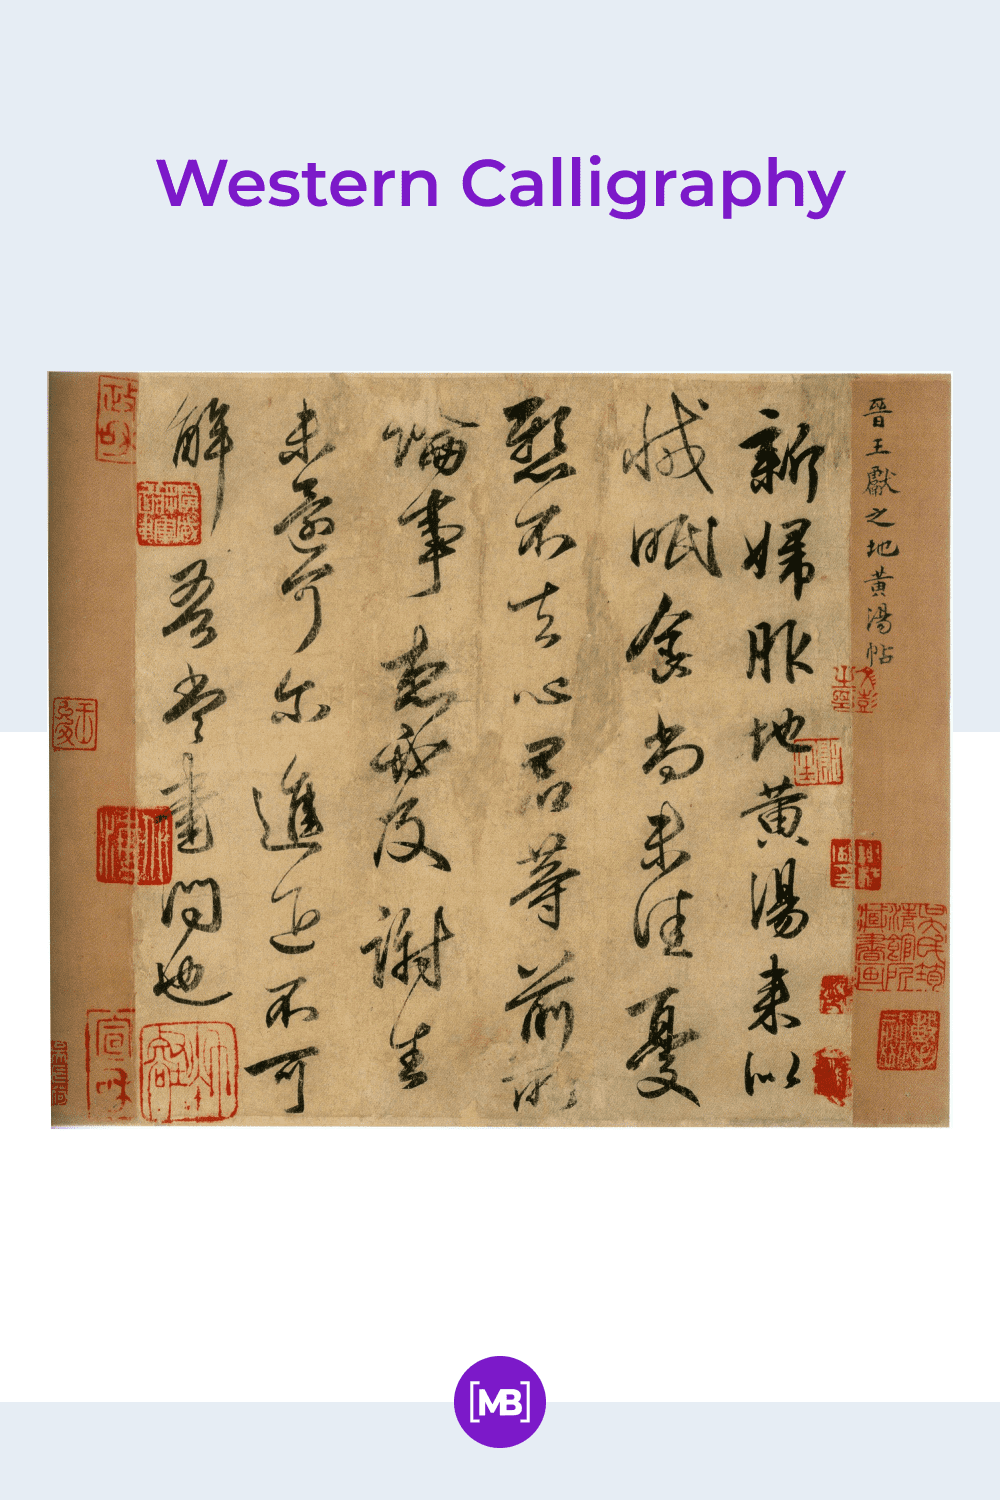 Western Calligraphy
晉王獻之地黃湯帖
新婦服地黃湯来似
減眠食尚未佳憂
懸不去心君等前所
論事想必及謝生
未還可尔進退不可
解吾當書問也
政和
宣和
吳氏筠清館所藏書畫
[MB]